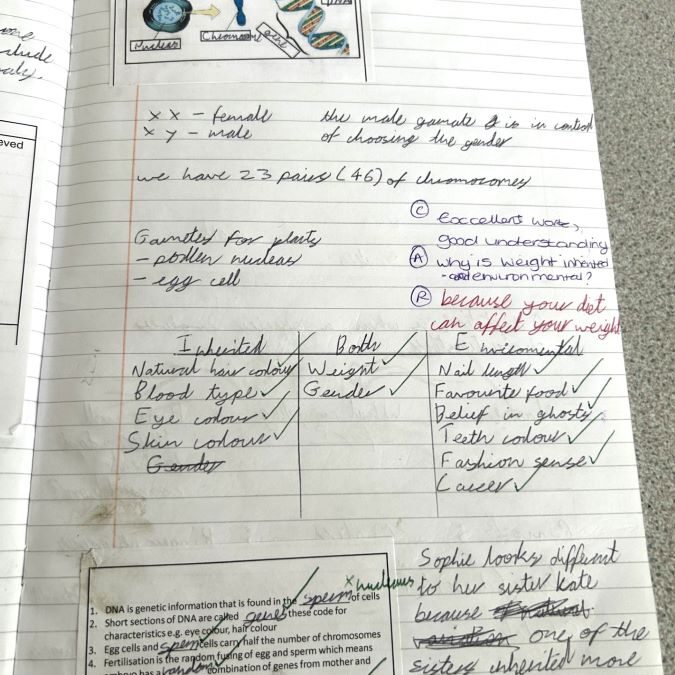 Nucleus
Chromosome
gene
DNA
xx - female
xy - male
the male gamate is in control
of choosing the gender
we have 23 pairs (46) of chromosomes
Gametes for plants
- pollen nucleus
- egg cell
C
Exccellent work,
good understanding
A
why is weight inherited
- and environmental?
R
because your diet
can affect your weight
Inherited
Natural hair colour
Blood type
Eye colour
Skin colour
Gender
Both
Weight
Gender
Enviromental
Nail length
Favourite food
Belief in ghosts
Teeth colour
Fashion sense
Career
1. DNA is genetic information that is found in the sperm of cells
x nucleus
2. Short sections of DNA are called genes these code for
characteristics e.g. eye colour, hair colour
3. Egg cells and sperm cells carry half the number of chromosomes
4. Fertilisation is the random fusing of egg and sperm which means
embryo has a random combination of genes from mother and
Sophie looks different
to her sister Kate
because
one of the
sisters inherited more